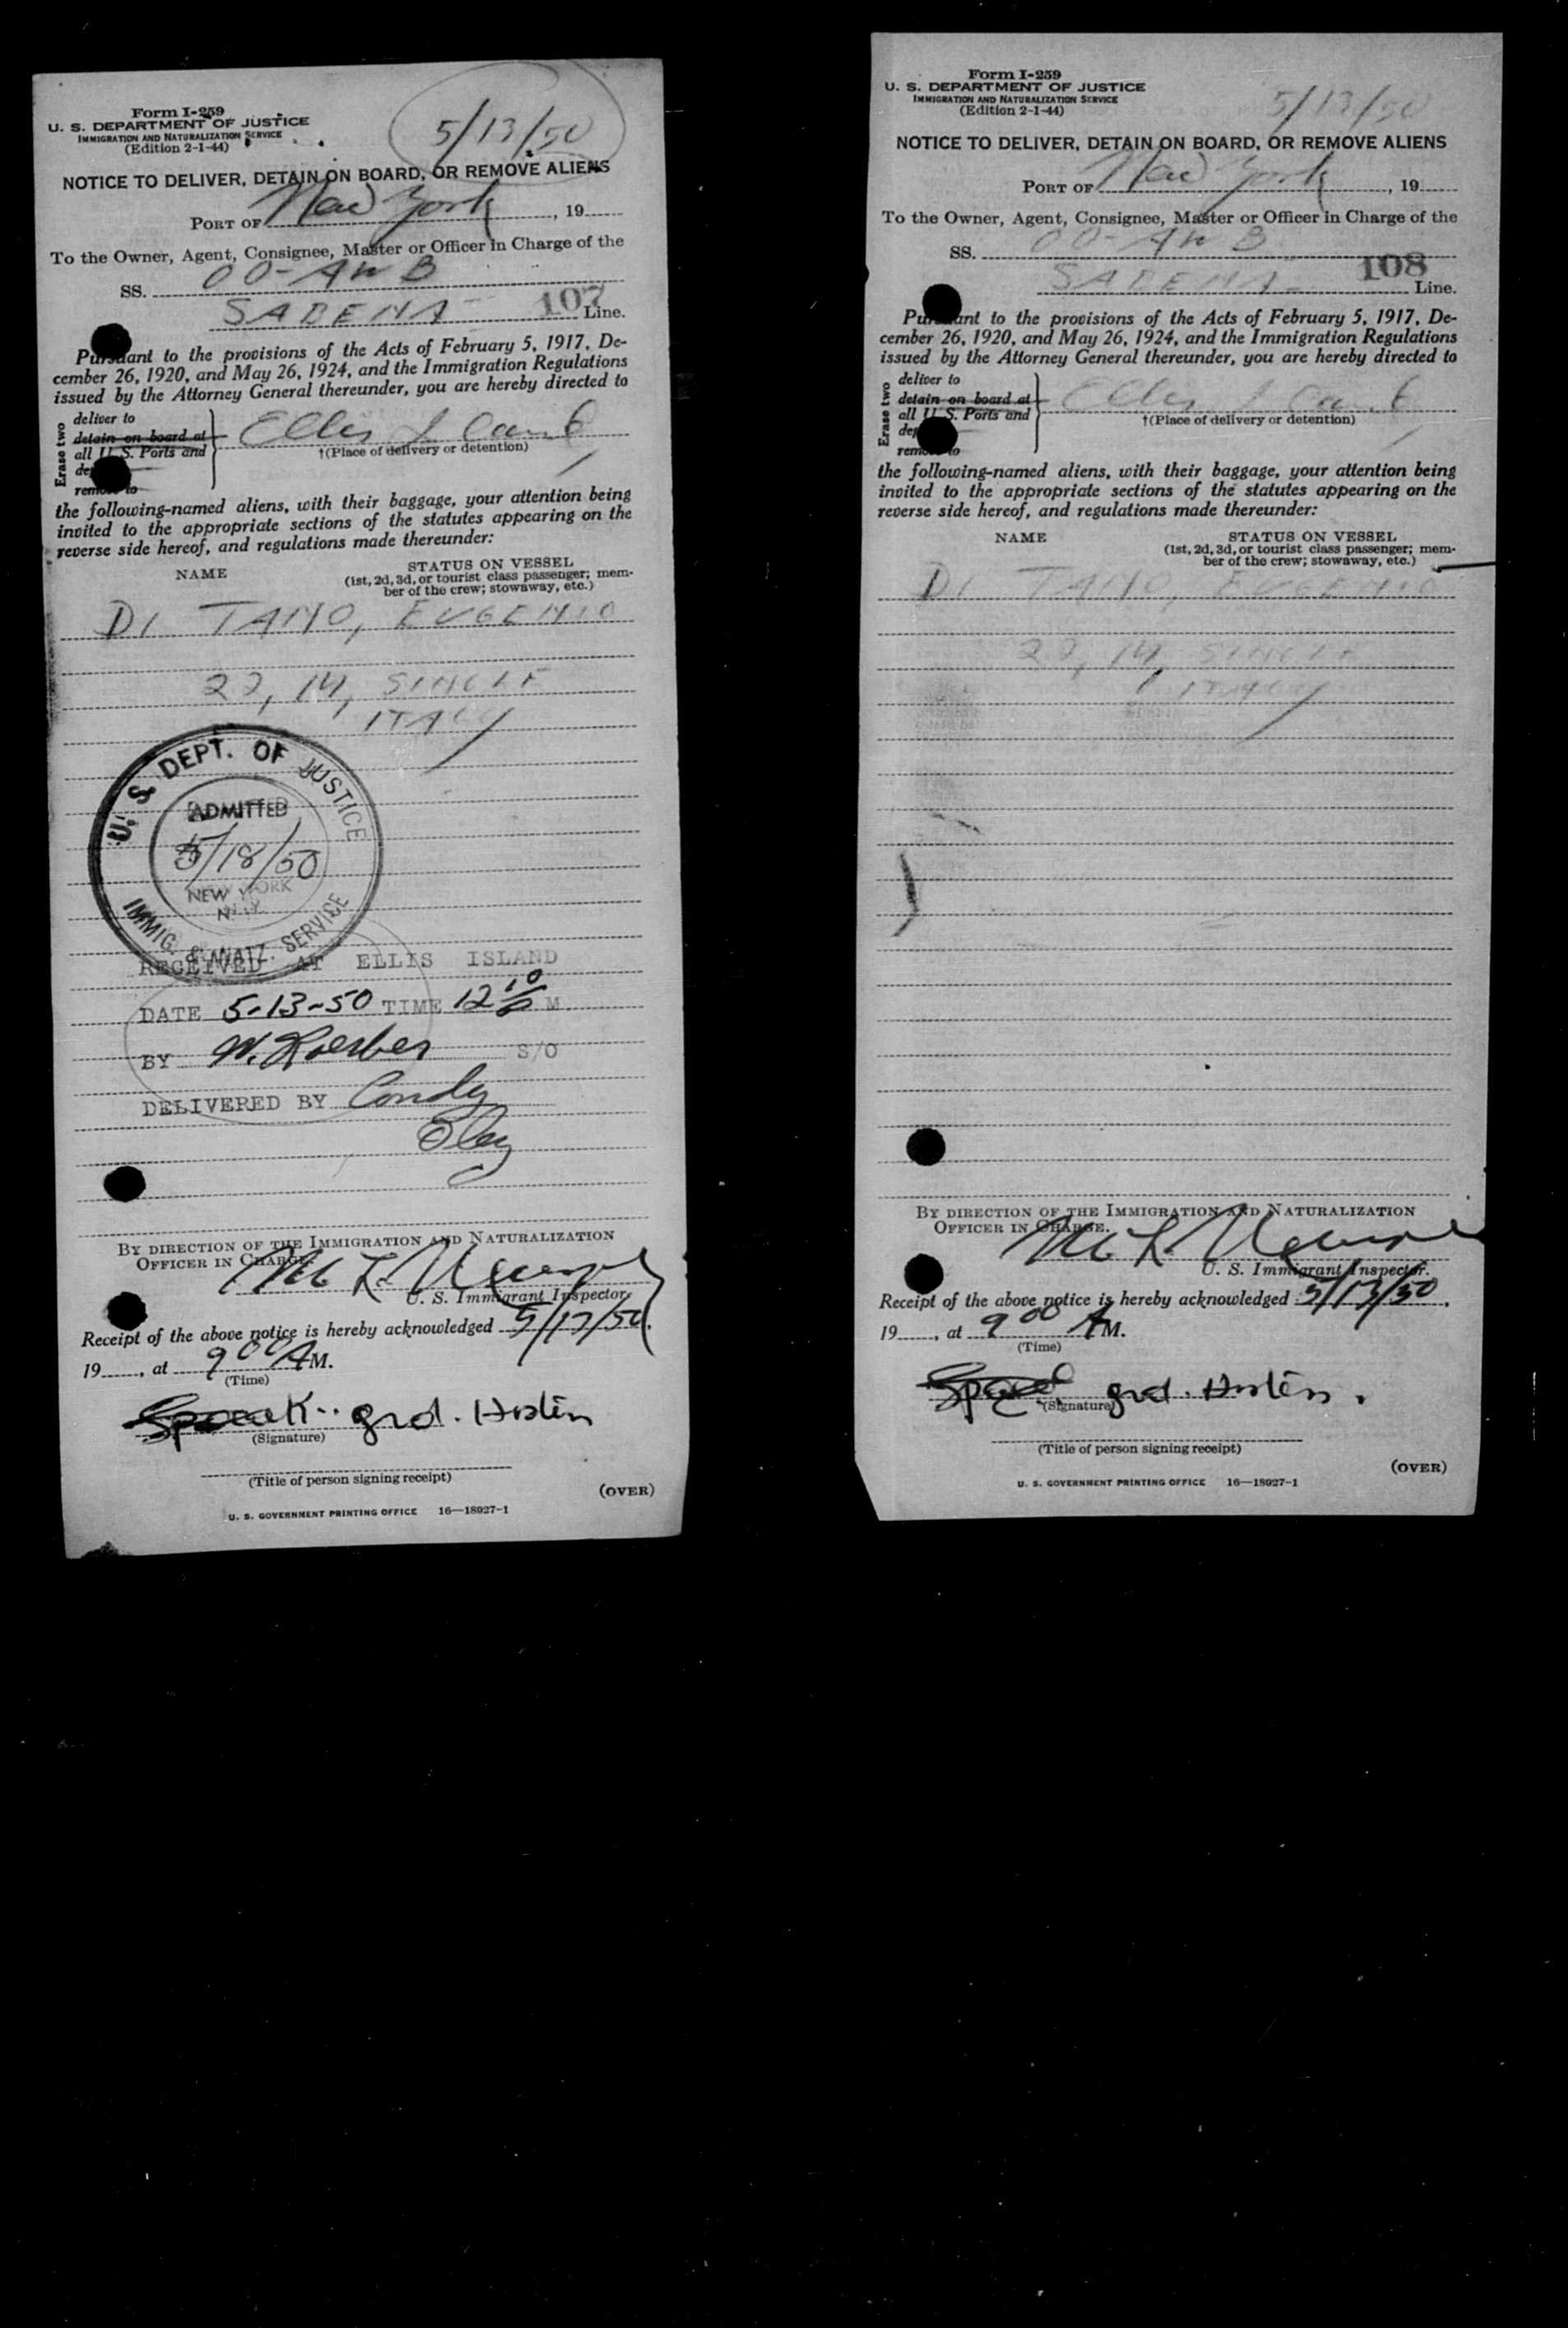 Form I-259
U. S. DEPARTMENT OF JUSTICE
IMMIGRATION AND NATURALIZATION SERVICE
(Edition 2-1-44)
5/13/50
NOTICE TO DELIVER, DETAIN ON BOARD, OR REMOVE ALIENS
PORT OF New York, 19
To the Owner, Agent, Consignee, Master or Officer in Charge of the
SS. OO-AWB
SABENA 107 Line.
Pursuant to the provisions of the Acts of February 5, 1917, De-
cember 26, 1920, and May 26, 1924, and the Immigration Regulations
issued by the Attorney General thereunder, you are hereby directed to
Erase two
deliver to
detain on board at
all U. S. Ports and
remove to
Ellis I
†(Place of delivery or detention)
the following-named aliens, with their baggage, your attention being
invited to the appropriate sections of the statutes appearing on the
reverse side hereof, and regulations made thereunder:
NAME
STATUS ON VESSEL
(1st, 2d, 3d, or tourist class passenger; mem-
ber of the crew; stowaway, etc.)
DI TANO, EUGENIO
22, M, SINGLE
ITALY
U. S. DEPT. OF JUSTICE
ADMITTED
5/18/50
NEW YORK
N. Y.
IMMIG. & NATZ. SERVICE
RECEIVED AT ELLIS ISLAND
DATE 5-13-50 TIME 12 10 M
BY W. S/O
DELIVERED BY
BY DIRECTION OF THE IMMIGRATION AND NATURALIZATION
OFFICER IN CHARGE.
U. S. Immigrant Inspector.
Receipt of the above notice is hereby acknowledged 5/13/50,
19, at 9 00 AM.
(Time)
grd. Hostess
(Signature)
(Title of person signing receipt)
(OVER)
U. S. GOVERNMENT PRINTING OFFICE 16—18927-1
Form I-259
U. S. DEPARTMENT OF JUSTICE
IMMIGRATION AND NATURALIZATION SERVICE
(Edition 2-1-44)
5/13/50
NOTICE TO DELIVER, DETAIN ON BOARD, OR REMOVE ALIENS
PORT OF New York, 19
To the Owner, Agent, Consignee, Master or Officer in Charge of the
SS. OO-AWB
SABENA 108 Line.
Pursuant to the provisions of the Acts of February 5, 1917, De-
cember 26, 1920, and May 26, 1924, and the Immigration Regulations
issued by the Attorney General thereunder, you are hereby directed to
Erase two
deliver to
detain on board at
all U. S. Ports and
remove to
Ellis I
†(Place of delivery or detention)
the following-named aliens, with their baggage, your attention being
invited to the appropriate sections of the statutes appearing on the
reverse side hereof, and regulations made thereunder:
NAME
STATUS ON VESSEL
(1st, 2d, 3d, or tourist class passenger; mem-
ber of the crew; stowaway, etc.)
DI TANO, EUGENIO
22, M, SINGLE
ITALY
BY DIRECTION OF THE IMMIGRATION AND NATURALIZATION
OFFICER IN CHARGE.
U. S. Immigrant Inspector.
Receipt of the above notice is hereby acknowledged 5/13/50,
19, at 9 00 AM.
(Time)
grd. Hostess.
(Signature)
(Title of person signing receipt)
(OVER)
U. S. GOVERNMENT PRINTING OFFICE 16—18927-1